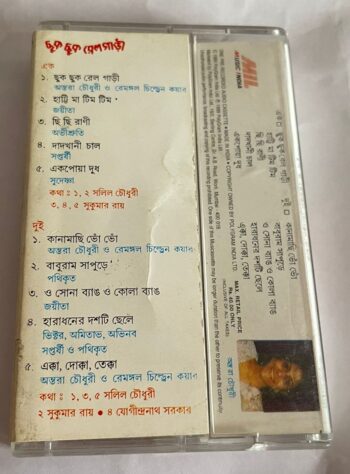 ছুক ছুক রেল গাড়ী
এক
১. ছুক ছুক রেল গাড়ী
অন্তরা চৌধুরী ও রেমঙ্গল চিল্ড্রেন কয়ার
২. হাট্টি মা টিম টিম
জয়ীতা
৩. ছি ছি রাণী
অভীশ্রুতি
৪. দাদখানী চাল
সপ্তর্ষী
৫. একপোয়া দুধ
সুদেষ্ণা
কথা : ১, ২ সলিল চৌধুরী
৩, ৪, ৫ সুকুমার রায়
দুই
১. কানামাছি ভোঁ ভোঁ
অন্তরা চৌধুরী ও রেমঙ্গল চিল্ড্রেন কয়ার
২. বাবুরাম সাপুড়ে
পথিকৃত
৩. ও সোনা ব্যাঙ ও কোলা ব্যাঙ
জয়ীতা
৪. হারাধনের দশটি ছেলে
ভিক্টর, অমিতাভ, অভিনব
সপ্তর্ষী ও পথিকৃত
৫. এক্কা, দোক্কা, তেক্কা
অন্তরা চৌধুরী ও রেমঙ্গল চিল্ড্রেন কয়ার
কথা : ১, ৩, ৫ সলিল চৌধুরী
২ সুকুমার রায় • ৪ যোগীন্দ্রনাথ সরকার
MIL
MUSIC INDIA
এক □ ছুক ছুক রেল গাড়ী
হাট্টি মা টিম টিম
ছি ছি রাণী
দাদখানী চাল
একপোয়া দুধ
দুই □ কানামাছি ভোঁ ভোঁ
বাবুরাম সাপুড়ে
ও সোনা ব্যাঙ ও কোলা ব্যাঙ
হারাধনের দশটি ছেলে
এক্কা, দোক্কা, তেক্কা
MAX. RETAIL PRICE
Rs. 40.00 ONLY
INCLUSIVE OF ALL TAXES
অন্তরা চৌধুরী